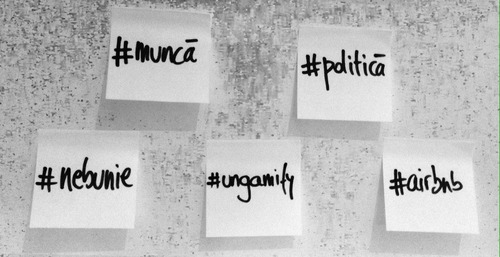 #muncă
#politică
#nebunie
#ungamify
#airbnb